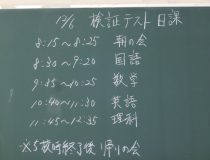 12/6 検証テスト日課
8:15~8:25 朝の会
8:30~9:20 国語
9:35~10:25 数学
10:40~11:30 英語
11:45~12:35 理科
※5校時終了後 帰りの会